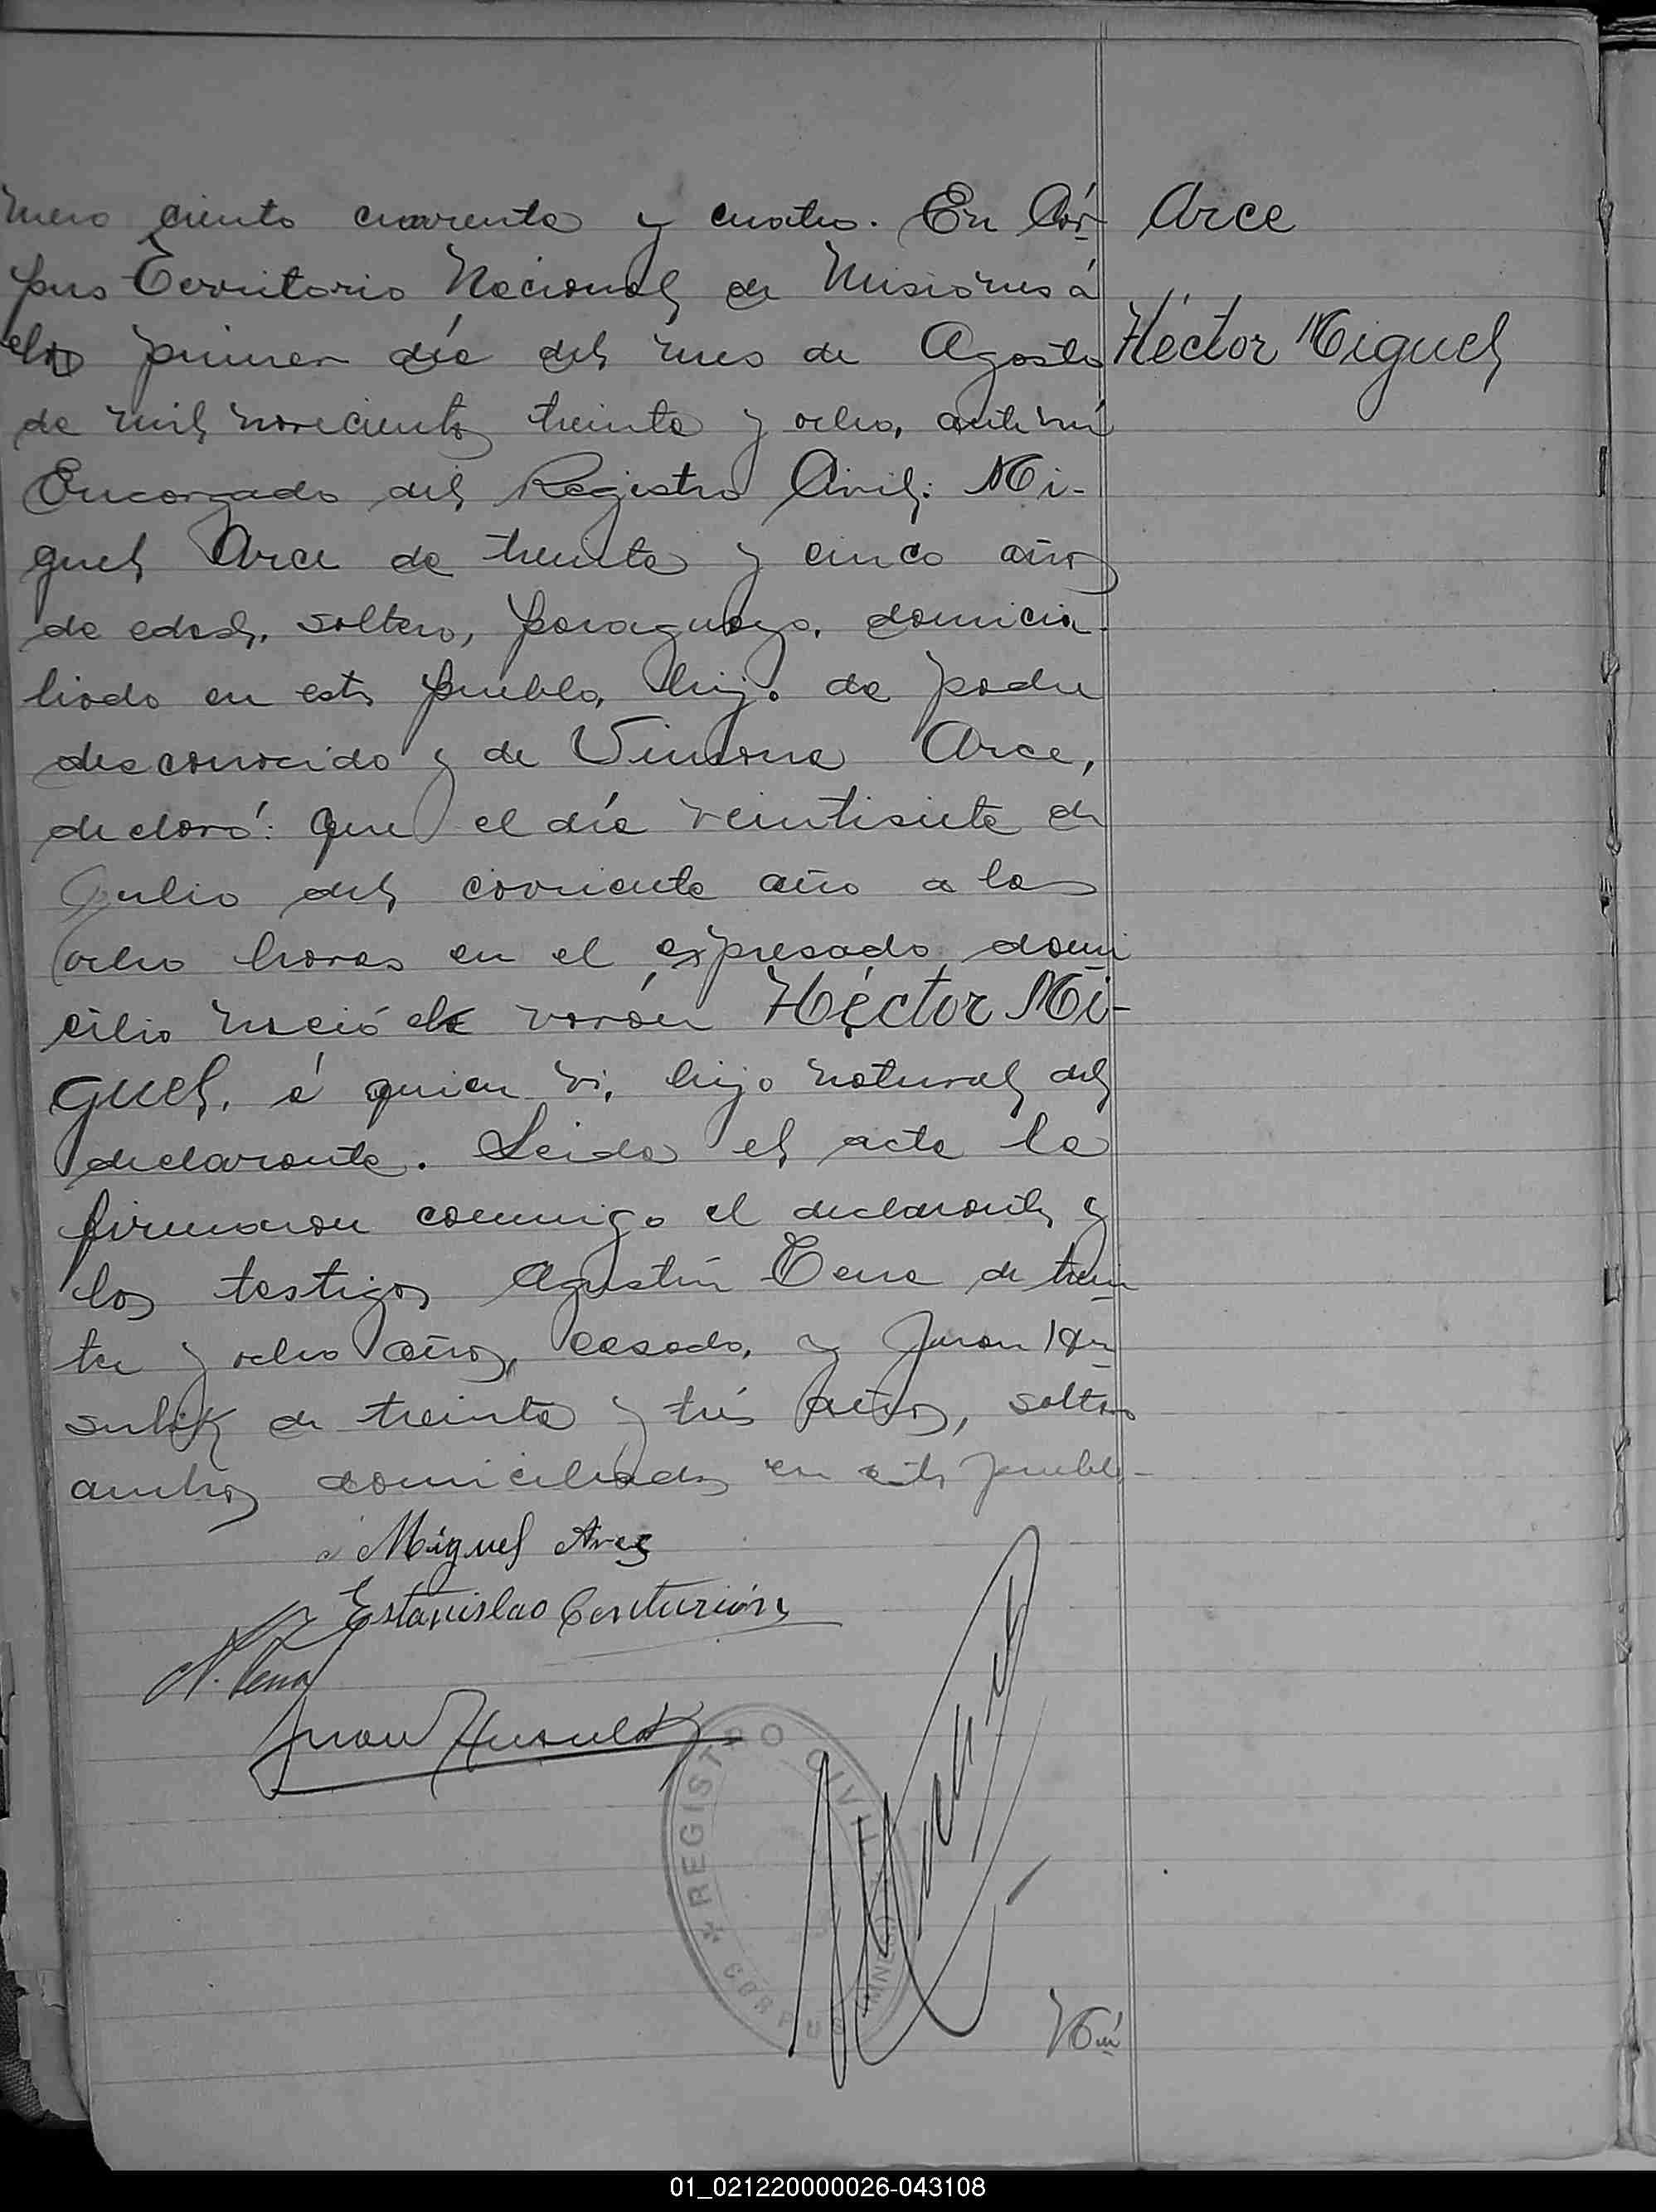 mero ciento cuarenta y cuatro. En Cór-
pus Territorio Nacional de Misiones á
primer día del mes de Agosto
de mil novecientos treinta y ocho, ante mí
Encargado del Registro Civil: Mi-
guel Arce de treinta y cinco años
de edad, soltero, paraguayo, domici-
liado en este pueblo, hijo de padre
desconocido y de Simona Arce,
declaró: Que el día veintisiete de
Julio del corriente año a las
ocho horas en el expresado domi
cilio nació el varón Héctor Mi-
guel, á quien vi, hijo natural del
declarante. Leida el acta la
firmaron conmigo el declarante y
los testigos Agustín Tena de trein
ta y ocho años, casado, y Juan Hu
sulak de treinta y trés años, soltero
ambos domiciliados en este pueblo-
Arce
Héctor Miguel
Miguel Arce
Estanislao Centurión
A. Tena
Juan Husulak
* REGISTRO CIVIL
CORPUS (MNES)
Nú
01_021220000026-043108